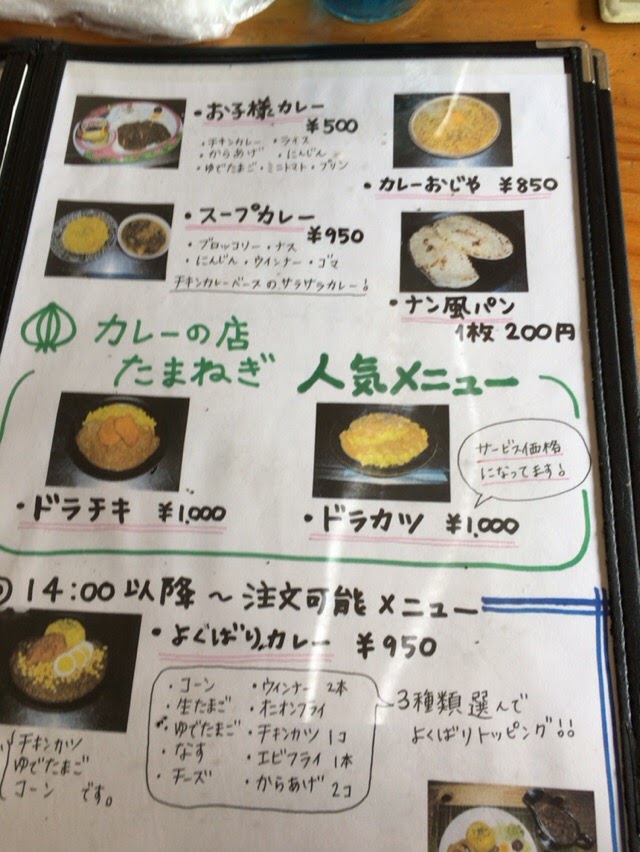 ・お子様カレー
¥500
・チキンカレー ・ライス
・からあげ ・にんじん
・ゆでたまご ・ミニトマト ・プリン
・カレーおじや ¥850
・スープカレー
¥950
・ブロッコリー ・ナス
・にんじん ・ウインナー ・ゴマ
チキンカレーベースのサラサラカレー!
・ナン風パン
1枚 200円
カレーの店
たまねぎ
人気メニュー
・ドラチキ ¥1,000
・ドラカツ ¥1,000
サービス価格
になってます!
14:00以降〜注文可能メニュー
・よくばりカレー ¥950
・コーン
・生たまご
・ゆでたまご
・なす
・チーズ
・ウィンナー 2本
・オニオンフライ
・チキンカツ 1コ
・エビフライ 1本
・からあげ 2コ
3種類選んで
よくばりトッピング!!
チキンカツ
ゆでたまご
コーン です。